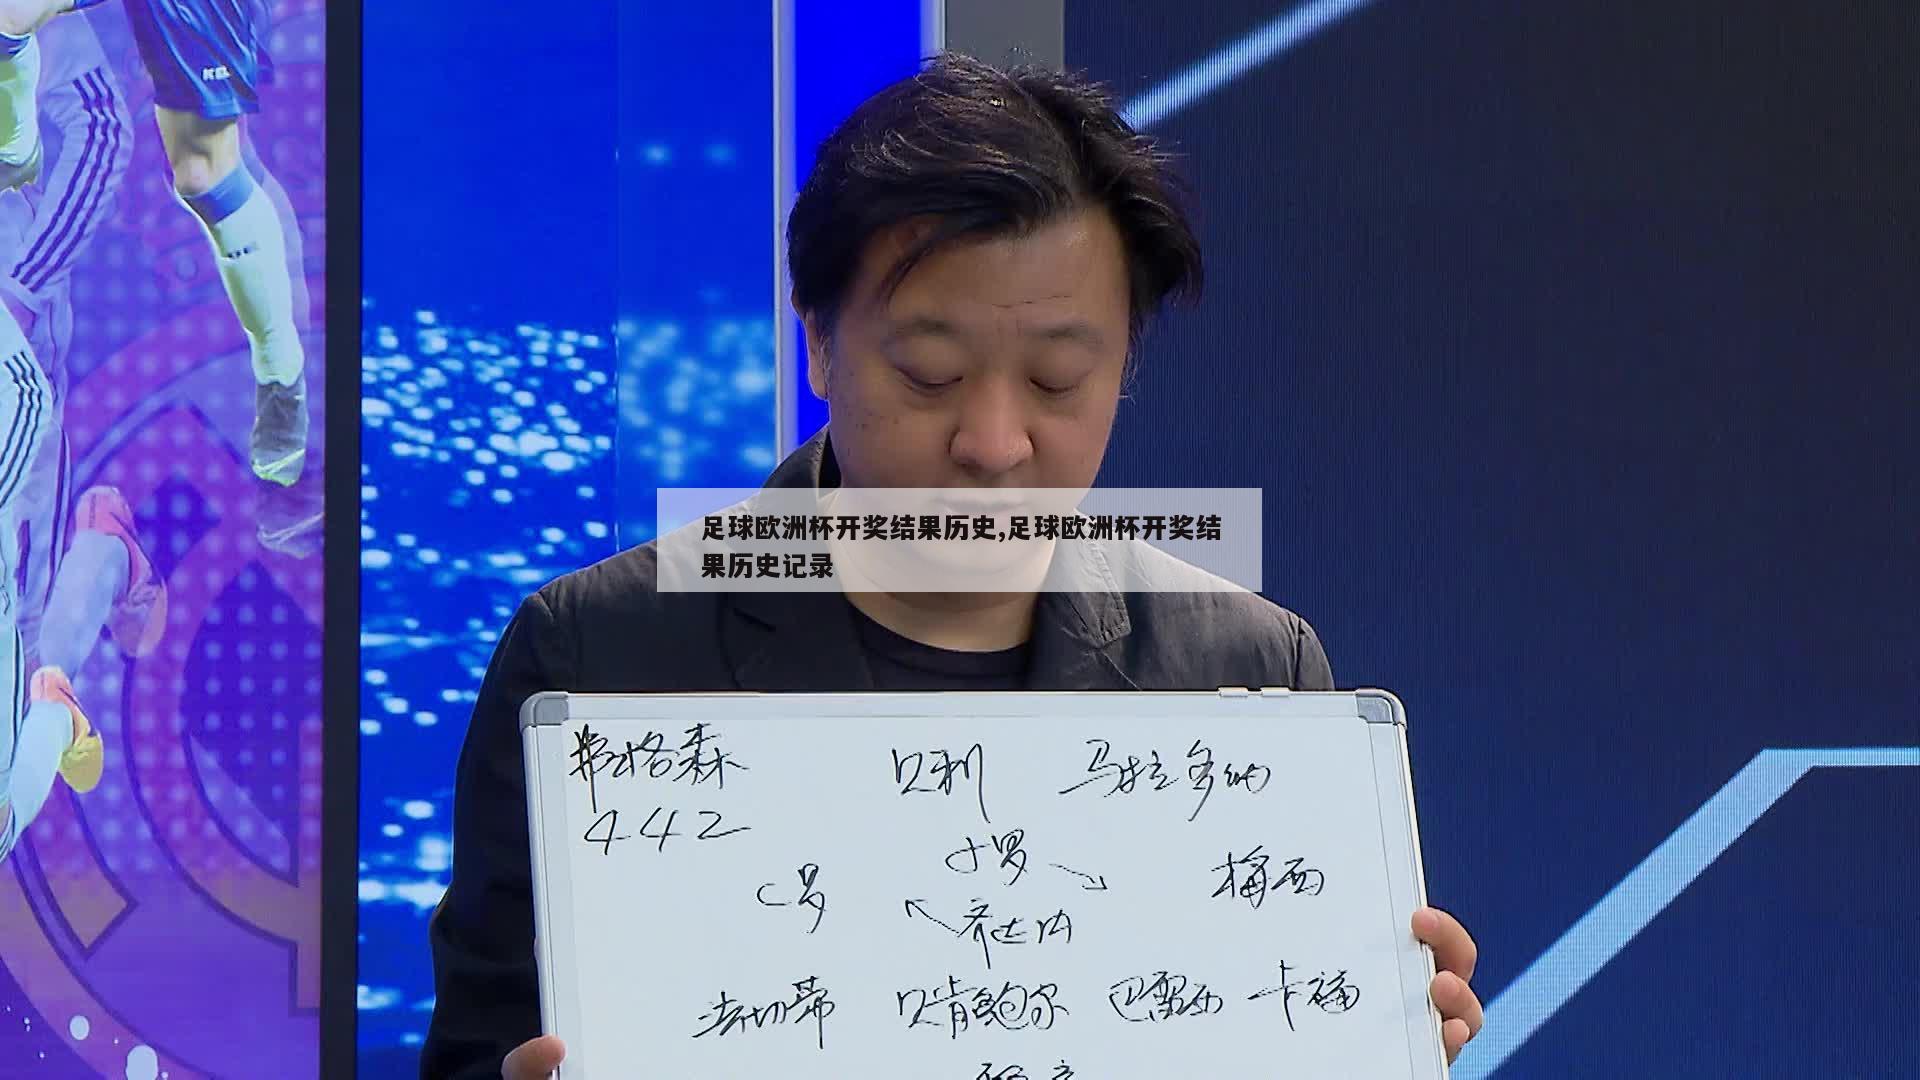 足球欧洲杯开奖结果历史,足球欧洲杯开奖结
果历史记录
弗格森 贝利 马拉多纳
442
小罗
C罗 梅西
齐达内
法切蒂 贝肯鲍尔 巴雷西 卡福